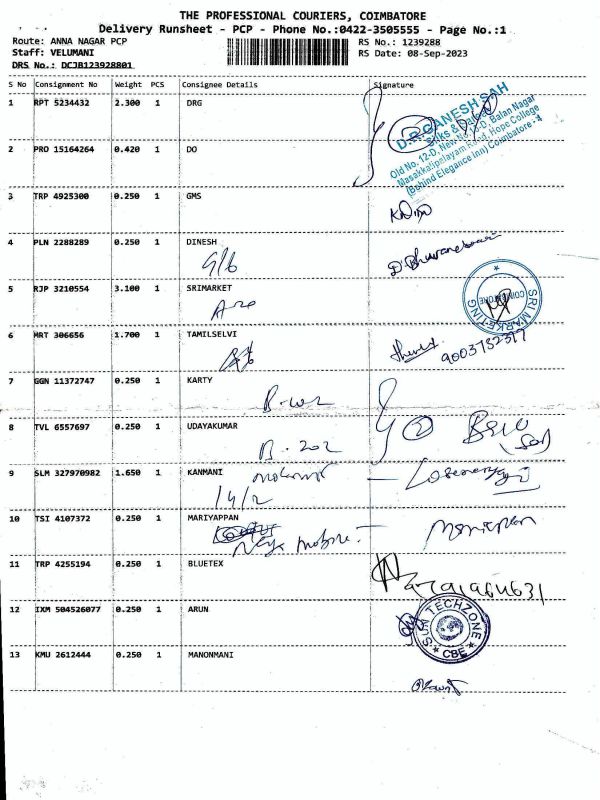 THE PROFESSIONAL COURIERS, COIMBATORE
Delivery Runsheet - PCP - Phone No.:0422-3505555 - Page No.:1
Route: ANNA NAGAR PCP RS No.: 1239288
Staff: VELUMANI RS Date: 08-Sep-2023
DRS No.: DCJB123928801
S No Consignment No Weight PCS Consignee Details Signature
1 RPT 5234432 2.300 1 DRG
D.R.GANESH SAH
Silks &
Old No. 12-D, New No. Balan Nagar
Masakkalipalayam Road, Hope College
(Behind Elegance Inn) Coimbatore - 4
2 PRO 15164264 0.420 1 DO
3 TRP 4925300 0.250 1 GMS
4 PLN 2288289 0.250 1 DINESH
G/6 D. Bhuvaneswari
5 RJP 3210554 3.100 1 SRIMARKET
SRI MARKETING COIMBATORE
6 MRT 306656 1.700 1 TAMILSELVI
9003732317
7 GGN 11372747 0.250 1 KARTY
B-202
8 TVL 6557697 0.250 1 UDAYAKUMAR
B-202 2
9 SLM 327970982 1.650 1 KANMANI
14/2
10 TSI 4107372 0.250 1 MARIYAPPAN
mobile
11 TRP 4255194 0.250 1 BLUETEX
12 IXM 504526077 0.250 1 ARUN
SUN TECHZONE
CBE
13 KMU 2612444 0.250 1 MANONMANI